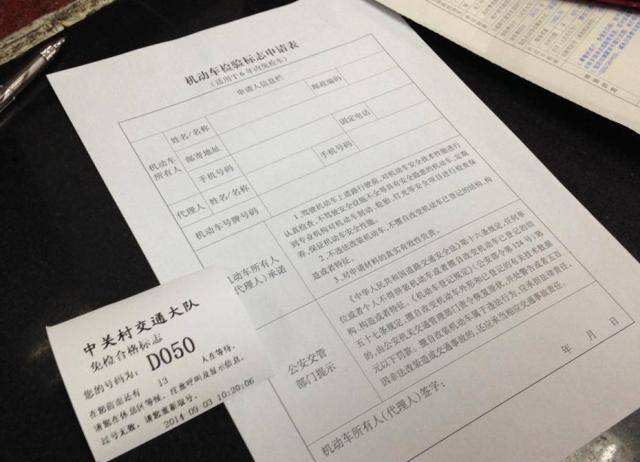 机动车检验标志申请表
(适用于6年内免检车)
申请人信息栏
机动车
所有人
姓名/名称
邮政编码
邮寄地址
固定电话
手机号码
手机号码
代理人
姓名/名称
机动车号牌号码
机动车所有人
(代理人)承诺
1.驾驶机动车上道路行驶前,对机动车安全技术性能进行
认真检查,不驾驶安全设施不全等具有安全隐患的机动车,定期
到专业机构对机动车制动、轮胎、灯光等安全项目进行检查保
养,保证机动车安全性能。
2.不违法改装机动车,不擅自改变机动车已登记的结构、构
造或者特征。
3.对申请材料的真实有效性负责。
公安交管
部门提示
《中华人民共和国道路交通安全法》第十六条规定,任何单
位或者个人不得拼装机动车或者擅自改变机动车已登记的结
构、构造或者特征。《机动车登记规定》(公安部令第124号)第
五十七条规定,擅自改变机动车外形和已登记的有关技术数据
的,由公安机关交通管理部门责令恢复原状,并处警告或者五百
元以下罚款。擅自改装机动车属于违法行为,完承担法律责任,
因非法改装造成交通事故的,还应承担相应交通事故责任。
年 月 日
机动车所有人(代理人)签字:
中关村交通大队
免检合格标志
您的号码为: D050
在您前面还有 13 人在等待,
请您在休息区等候,注意呼叫及显示信息,
过号无效,请您重新取号。
2014 09 03 10:20:06